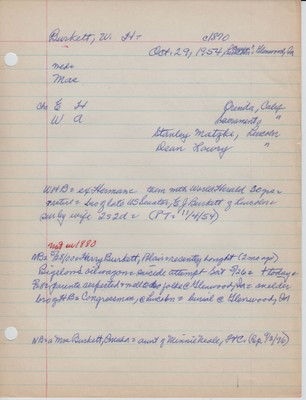 Burkett, W. H= c1870
Oct. 29, 1954, Glenwood, Ia
neps
Mae
Chr E H Orinda, Calif
W A Sacramento "
Stanley Matzke, Lincoln
Dean Lowry "
WHB = ex Herman= then with World Herald 30 yrs=
retired= bro of late US Senator, E. J. Burkett of Lincoln=
sur by wife 2s 2d= (PT= 11/4/54)
NB= Harry Burkett, Blair= recently bought (2 mo ago)
Bigelow's oil wagon= suicide attempt = today=
parents = folks @ Glenwood, Ia= an elder
bro of HB= Congressman, @ Lincoln= burial @ Glenwood, Ia
NB= a Mrs Burkett, Omaha= aunt of Minnie Neale,